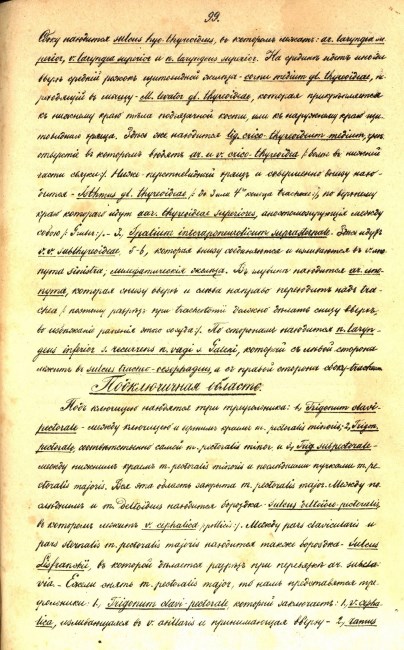 99.
Сбоку находится sulcus hyo-thyreoideus, въ которомъ лежатъ: ar. laryngea su-
perior, v. laryngea superior и n. laryngeus superior. На срединѣ идетъ иногда
вверхъ средній рожокъ щитовидной железы - cornu medium gl. thyreoideae, пе-
реходящій въ мышцу - m. levator gl. thyreoideae, которая прикрѣпляется
къ нижнему краю тѣла подъязычной кости, или къ наружному краю щи-
товиднаго хряща. Здѣсь же находится lig. crico-thyreoideum medium, чрезъ
отверстія въ которомъ входятъ ar. и v. crico-thyreoidea /: близко въ нижней
части связки:/. Ниже перстневидный хрящъ и совершенно внизу нахо-
дится - Isthmus gl. thyreoideae /: до 3 или 4го кольца tracheae:/, по верхнему
краю котораго идутъ aar. thyreoideae superiores, анастомозирующія между
собою /: :/. - 2, Spatium interaponeuroticum suprasternale. Здѣсь идутъ
v.v. subthyreoideae 5-6, которыя внизу соединяются и вливаются въ v. ано-
нута sinistra; лимфатическія железы. Въ глубинѣ находится ar. ano-
nyma, которая снизу вверхъ и слѣва направо переходитъ надъ tra-
chea /: поэтому разрѣзъ при tracheotomii должно дѣлать снизу вверхъ,
во избѣжаніе раненія этого сосуда:/. По сторонамъ находится n. laryn-
geus inferior s. recurrens n. vagi s. Galeni, который съ лѣвой стороны
лежитъ въ sulcus tracheo-oesophageus, а съ правой стороны сбоку tracheae
Подключичная область.
Подъ ключицею находятся три треугольника: 1, Trigonum clavi-
pectorale - между ключицею и верхнимъ краемъ m. pectoralis minoris; 2, Trigon.
pectorale, соотвѣтственно самой m. pectoralis minor и 3, Trig. subpectorale -
между нижнимъ краемъ m. pectoralis minoris и послѣдними пучками m. pe-
ctoralis majoris. Вся эта область закрыта m. pectoralis major. Между по-
слѣднимъ и m. deltoideus находится бороздка - sulcus deltoideo-pectoralis
въ которомъ лежитъ v. cephalica /: pollicis:/. Между pars clavicularis и
pars sternalis m. pectoralis majoris находится также бороздка - Sulcus
Lisfrankii, въ которой дѣлается разрѣзъ при перевязкѣ ar. subcla-
via. - Ежели снять m. pectoralis major, то намъ представятся тре-
угольники: 1, Trigonum clavi-pectorale, который заключаетъ: 1, v. cepha-
lica, изливающаяся въ v. axillaris и принимающая вверху - 2, ramus